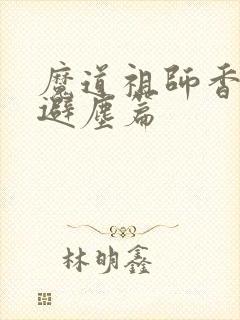 魔道祖師香
避塵篇
林明鑫